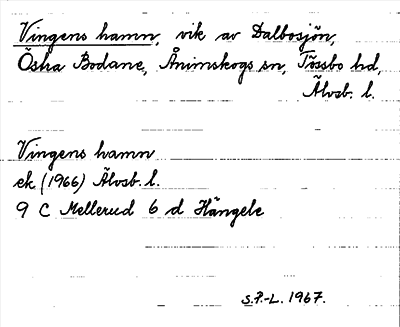 Vingens hamn, vik av Dalbosjön,
Östra Bodane, Ånimskogs sn, Tössbo hd,
Älvsb. l.
Vingens hamn
ek (1966) Älvsb. l.
9 C Mellerud 6 d Hängele
S.P.-L. 1967.